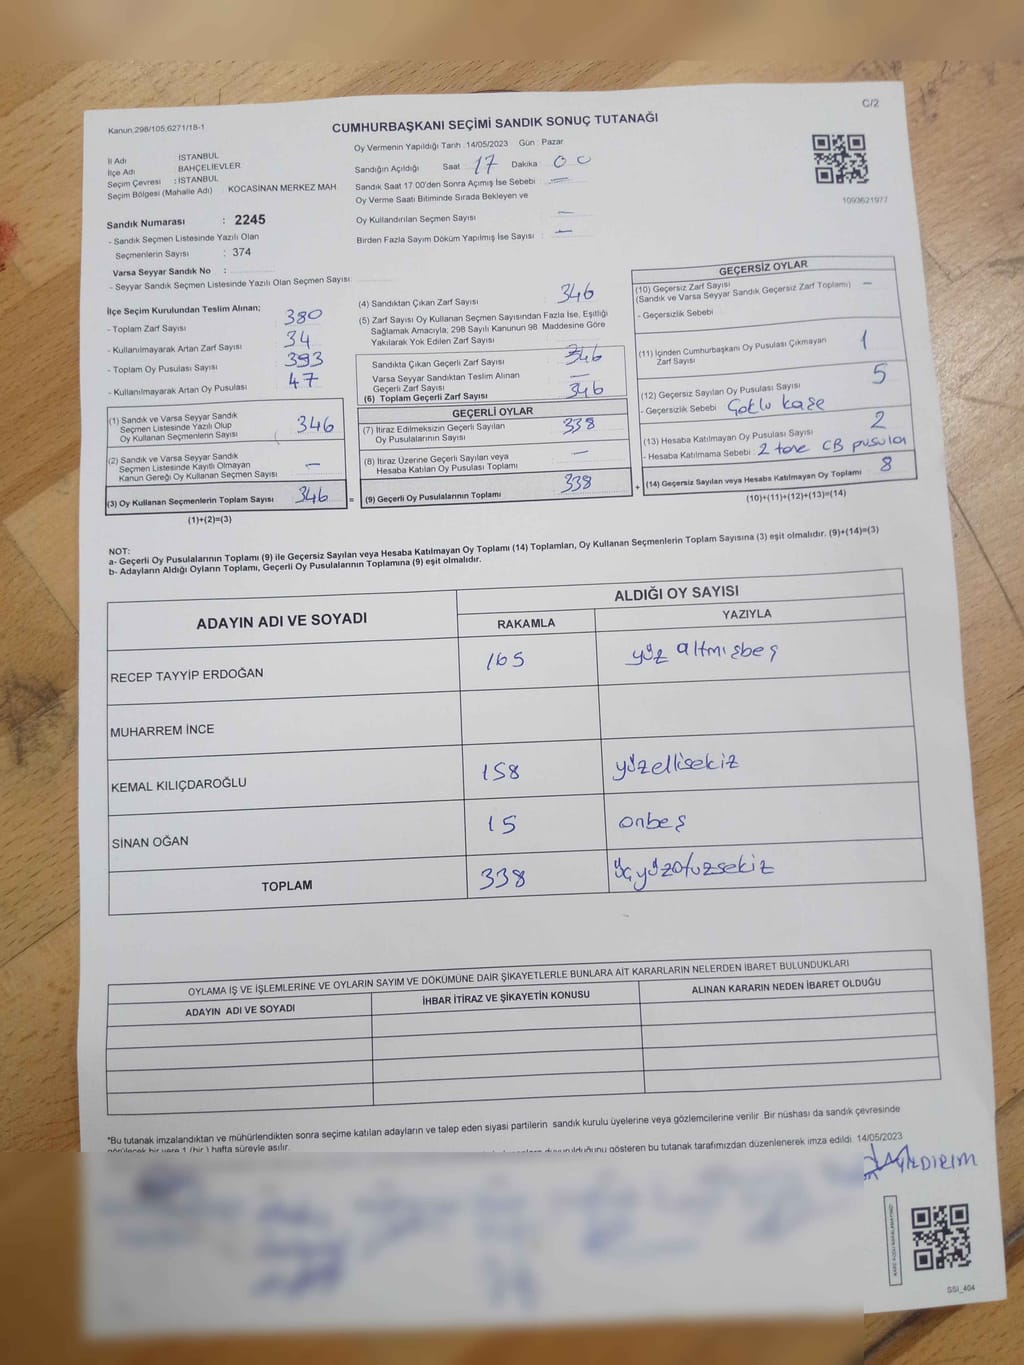 Kanun.298/105;6271/18-1
C/2
CUMHURBAŞKANI SEÇİMİ SANDIK SONUÇ TUTANAĞI
İl Adı İSTANBUL
İlçe Adı BAHÇELİEVLER
Seçim Çevresi : İSTANBUL
Seçim Bölgesi (Mahalle Adı) KOCASİNAN MERKEZ MAH
Oy Vermenin Yapıldığı Tarih : 14/05/2023 Gün : Pazar
Sandığın Açıldığı Saat 17 Dakika 00
Sandık Saat 17.00'den Sonra Açımış İse Sebebi : —
Oy Verme Saati Bitiminde Sırada Bekleyen ve
Oy Kullandırılan Seçmen Sayısı —
Birden Fazla Sayım Döküm Yapılmış İse Sayısı : —
1093621977
Sandık Numarası : 2245
- Sandık Seçmen Listesinde Yazılı Olan
Seçmenlerin Sayısı : 374
Varsa Seyyar Sandık No :
- Seyyar Sandık Seçmen Listesinde Yazılı Olan Seçmen Sayısı:
İlçe Seçim Kurulundan Teslim Alınan;
- Toplam Zarf Sayısı 380
- Kullanılmayarak Artan Zarf Sayısı 34
- Toplam Oy Pusulası Sayısı 393
- Kullanılmayarak Artan Oy Pusulası 47
(1) Sandık ve Varsa Seyyar Sandık
Seçmen Listesinde Yazılı Olup
Oy Kullanan Seçmenlerin Sayısı 346
(2) Sandık ve Varsa Seyyar Sandık
Seçmen Listesinde Kayıtlı Olmayan
Kanun Gereği Oy Kullanan Seçmen Sayısı —
(3) Oy Kullanan Seçmenlerin Toplam Sayısı 346 =
(1)+(2)=(3)
(4) Sandıktan Çıkan Zarf Sayısı 346
(5) Zarf Sayısı Oy Kullanan Seçmen Sayısından Fazla İse, Eşitliği
Sağlamak Amacıyla, 298 Sayılı Kanunun 98. Maddesine Göre
Yakılarak Yok Edilen Zarf Sayısı
Sandıkta Çıkan Geçerli Zarf Sayısı 346
Varsa Seyyar Sandıktan Teslim Alınan
Geçerli Zarf Sayısı —
(6) Toplam Geçerli Zarf Sayısı 346
GEÇERLİ OYLAR
(7) İtiraz Edilmeksizin Geçerli Sayılan
Oy Pusulalarının Sayısı 338
(8) İtiraz Üzerine Geçerli Sayılan veya
Hesaba Katılan Oy Pusulası Toplamı —
(9) Geçerli Oy Pusulalarının Toplamı 338 +
GEÇERSİZ OYLAR
(10) Geçersiz Zarf Sayısı
(Sandık ve Varsa Seyyar Sandık Geçersiz Zarf Toplamı) —
- Geçersizlik Sebebi
(11) İçinden Cumhurbaşkanı Oy Pusulası Çıkmayan
Zarf Sayısı 1
(12) Geçersiz Sayılan Oy Pusulası Sayısı 5
- Geçersizlik Sebebi Çoklu kaşe
(13) Hesaba Katılmayan Oy Pusulası Sayısı 2
- Hesaba Katılmama Sebebi 2 tane CB pusula
(14) Geçersiz Sayılan veya Hesaba Katılmayan Oy Toplamı 8
(10)+(11)+(12)+(13)=(14)
NOT:
a- Geçerli Oy Pusulalarının Toplamı (9) ile Geçersiz Sayılan veya Hesaba Katılmayan Oy Toplamı (14) Toplamları, Oy Kullanan Seçmenlerin Toplam Sayısına (3) eşit olmalıdır. (9)+(14)=(3)
b- Adayların Aldığı Oyların Toplamı, Geçerli Oy Pusulalarının Toplamına (9) eşit olmalıdır.
ADAYIN ADI VE SOYADI
ALDIĞI OY SAYISI
RAKAMLA YAZIYLA
RECEP TAYYİP ERDOĞAN 165 yüz altmışbeş
MUHARREM İNCE
KEMAL KILIÇDAROĞLU 158 yüzellisekiz
SİNAN OĞAN 15 onbeş
TOPLAM 338 üçyüzotuzsekiz
OYLAMA İŞ VE İŞLEMLERİNE VE OYLARIN SAYIM VE DÖKÜMÜNE DAİR ŞİKAYETLERLE BUNLARA AİT KARARLARIN NELERDEN İBARET BULUNDUKLARI
ADAYIN ADI VE SOYADI İHBAR İTİRAZ VE ŞİKAYETİN KONUSU ALINAN KARARIN NEDEN İBARET OLDUĞU
*Bu tutanak imzalandıktan ve mühürlendikten sonra seçime katılan adayların ve talep eden siyasi partilerin sandık kurulu üyelerine veya gözlemcilerine verilir. Bir nüshası da sandık çevresinde
görülecek bir yere 1 (bir) hafta süreyle asılır.
duyurulduğunu gösteren bu tutanak tarafımızdan düzenlenerek imza edildi. 14/05/2023
YILDIRIM
SSİ_404